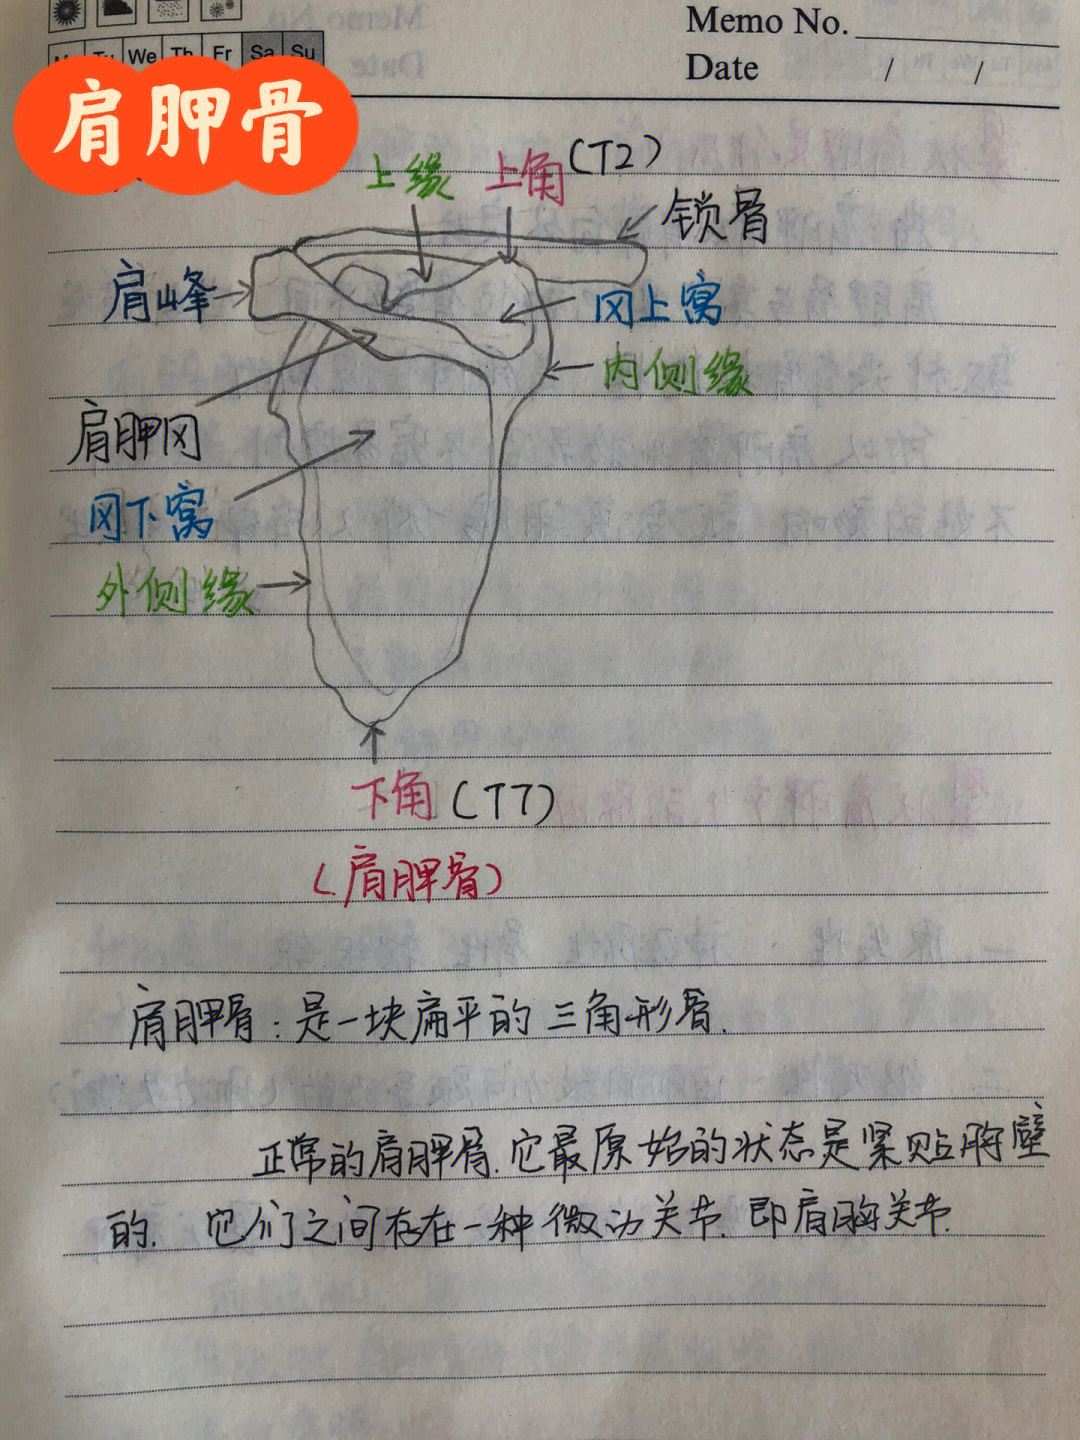 Memo No.
Mo Tu We Th Fr Sa Su
Date / /
肩胛骨
上缘 上角(T2)
锁骨
肩峰
冈上窝
内侧缘
肩胛冈
冈下窝
外侧缘
下角(T7)
(肩胛骨)
肩胛骨:是一块扁平的三角形骨.
正常的肩胛骨.它最原始的状态是紧贴胸壁
的. 它们之间存在一种微动关节.即肩胸关节.